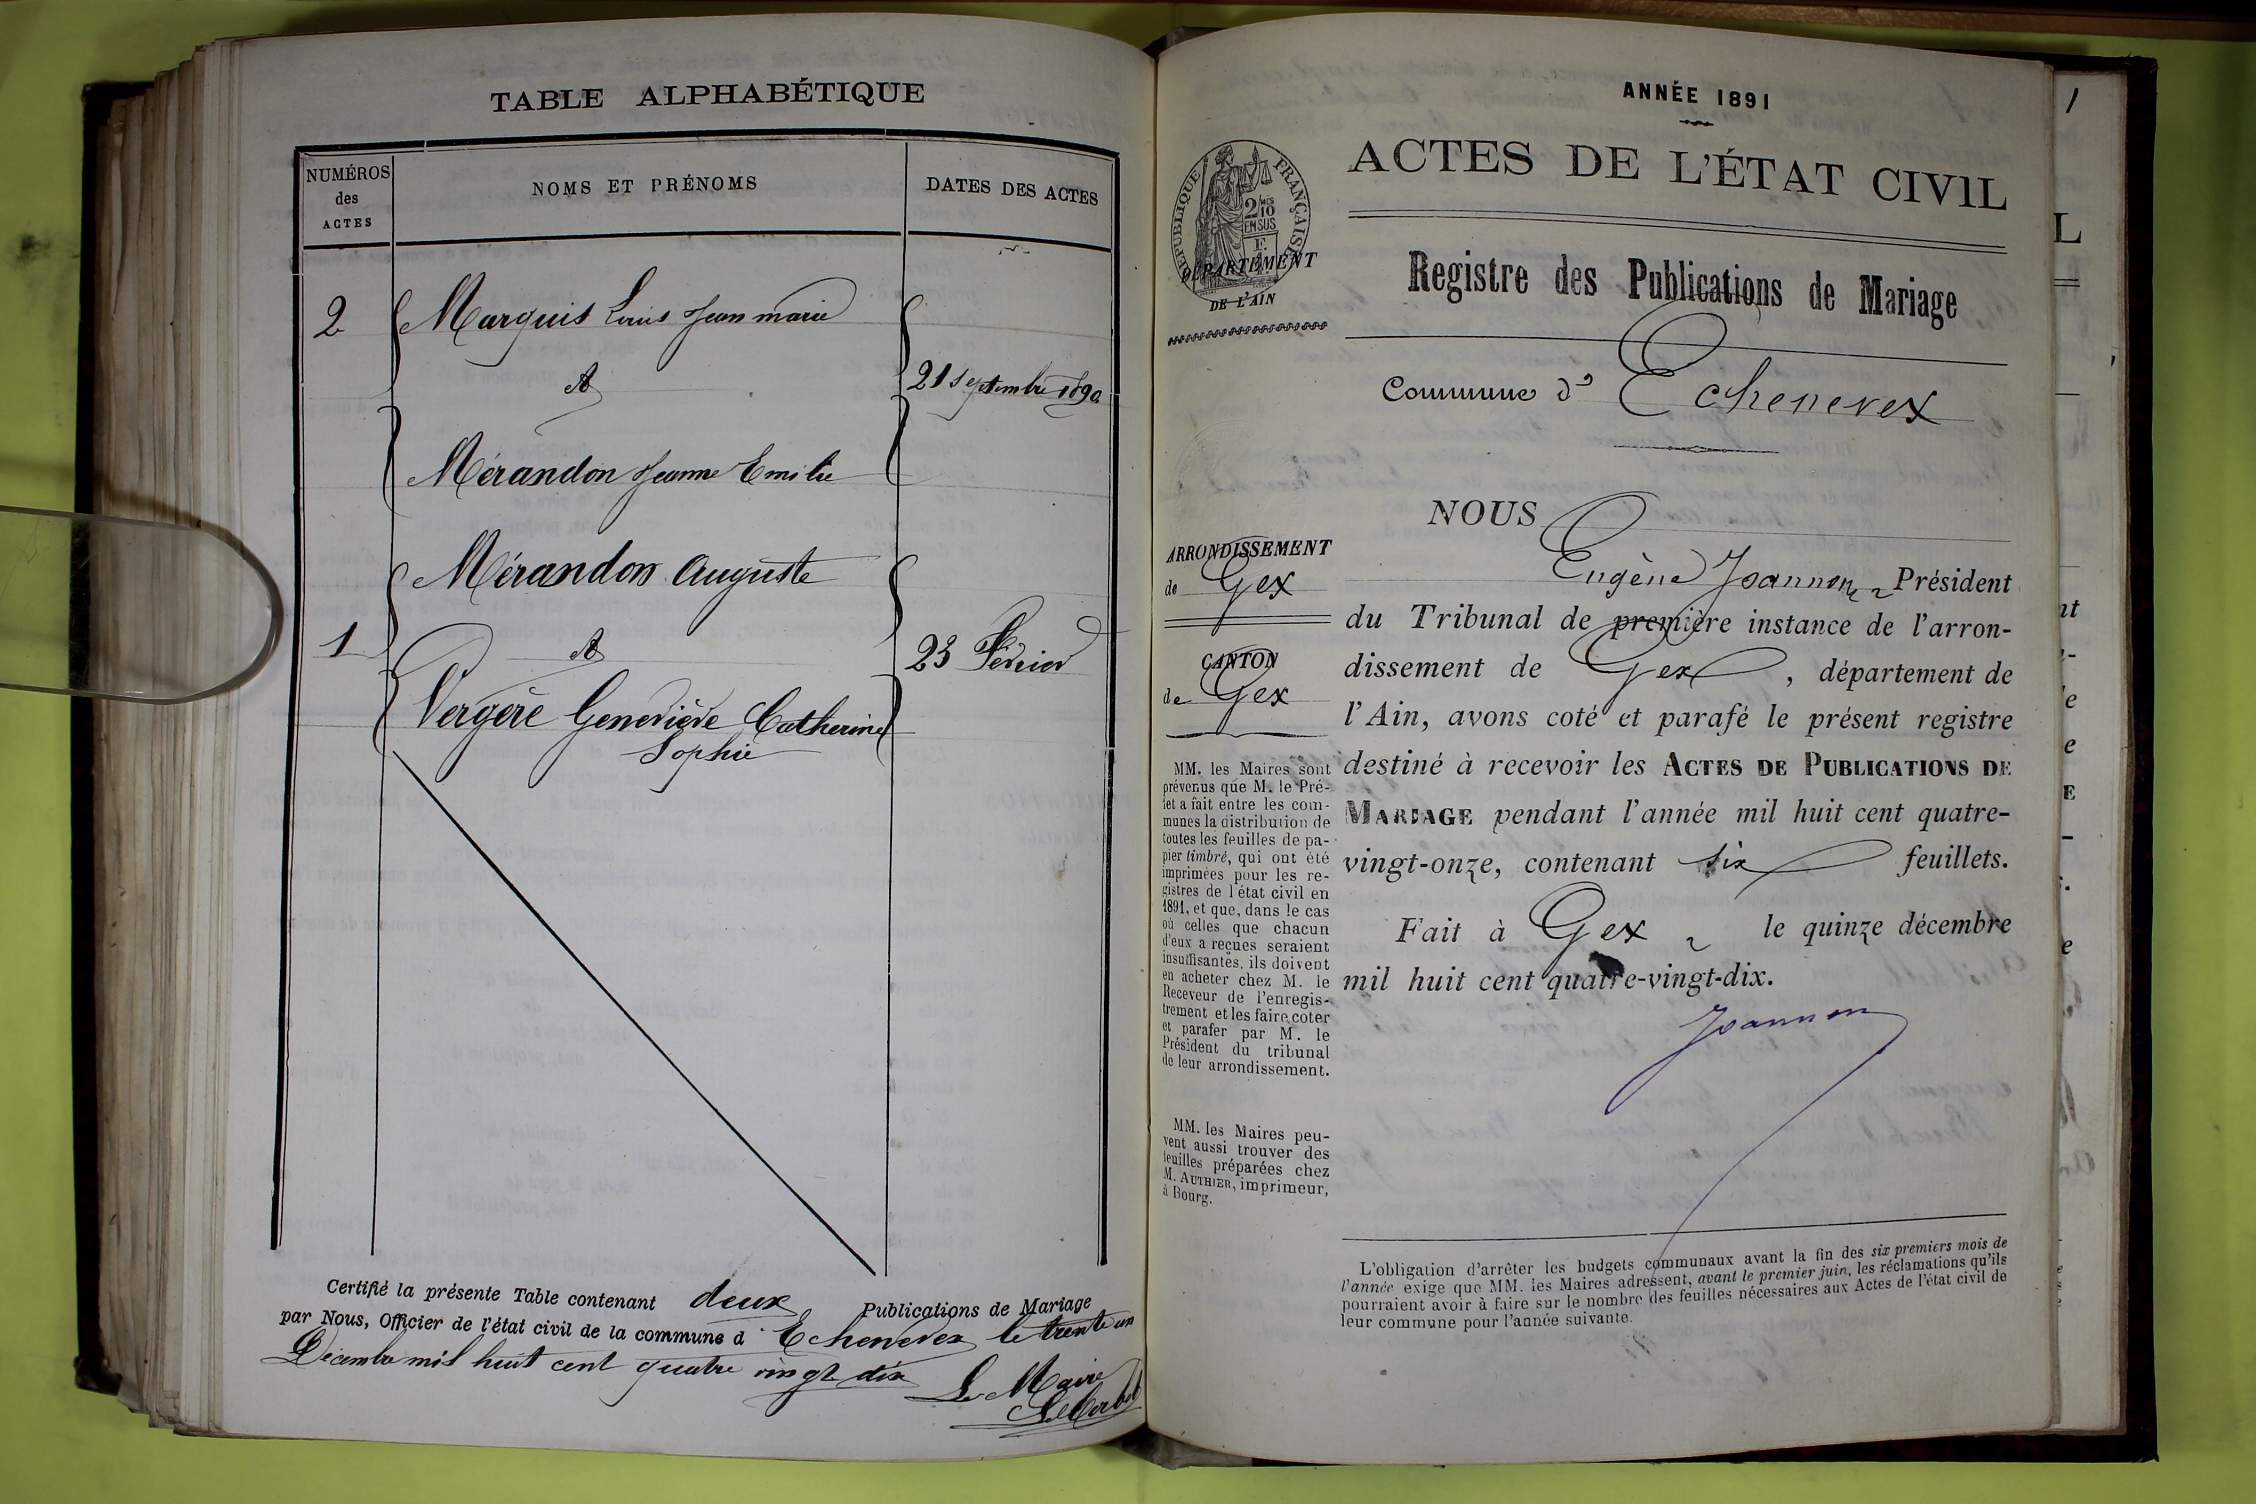 TABLE ALPHABÉTIQUE
NUMÉROS
des
ACTES
NOMS ET PRÉNOMS
DATES DES ACTES
2
Marquis Louis Jean marie
&
21 septembre 1890
Mérandon Jeanne Emilie
Mérandon Auguste
1
&
23 Février
Vergère Geneviève Catherine
Sophie
Certifié la présente Table contenant deux Publications de Mariage
par Nous, Officier de l'état civil de la commune d'Echenevex le trente un
Décembre mil huit cent quatre vingt dix
Le Maire
ANNÉE 1891
ACTES DE L'ÉTAT CIVIL
RÉPUBLIQUE FRANÇAISE
2/10 MES
EN SUS
DÉPARTEMENT
DE L'AIN
Registre des Publications de Mariage
Commune d' Echenevex
ARRONDISSEMENT
de Gex
CANTON
de Gex
MM. les Maires sont
prévenus que M. le Pré-
fet a fait entre les com-
munes la distribution de
toutes les feuilles de pa-
pier timbré, qui ont été
imprimées pour les re-
gistres de l'état civil en
1891, et que, dans le cas
où celles que chacun
d'eux a reçues seraient
insuffisantes, ils doivent
en acheter chez M. le
Receveur de l'enregis-
trement et les faire coter
et parafer par M. le
Président du tribunal
de leur arrondissement.
MM. les Maires peu-
vent aussi trouver des
feuilles préparées chez
M. AUTHIER, imprimeur,
à Bourg.
NOUS
Eugène Joannon Président
du Tribunal de première instance de l'arron-
dissement de Gex, département de
l'Ain, avons coté et parafé le présent registre
destiné à recevoir les ACTES DE PUBLICATIONS DE
MARIAGE pendant l'année mil huit cent quatre-
vingt-onze, contenant six feuillets.
Fait à Gex le quinze décembre
mil huit cent quatre-vingt-dix.
Joannon
L'obligation d'arrêter les budgets communaux avant la fin des six premiers mois de
l'année exige que MM. les Maires adressent, avant le premier juin, les réclamations qu'ils
pourraient avoir à faire sur le nombre des feuilles nécessaires aux Actes de l'état civil de
leur commune pour l'année suivante.